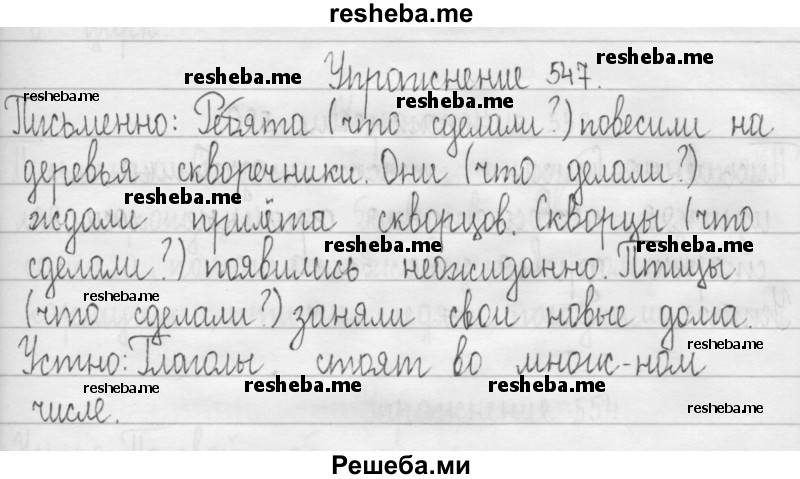 resheba.me
Упражнение 547.
resheba.me
resheba.me
resheba.me
resheba.me
Письменно: Ребята (что сделали?) повесили на
деревья скворечники. Они (что делали?)
resheba.me
ждали прилёта скворцов. Скворцы (что
resheba.me
resheba.me
сделали?) появились неожиданно. Птицы
resheba.me
(что сделали?) заняли свои новые дома.
resheba.me
resheba.me
Устно: Глаголы стоят во множ-ном
resheba.me
resheba.me
resheba.me
числе.
resheba.me
Решеба.ми